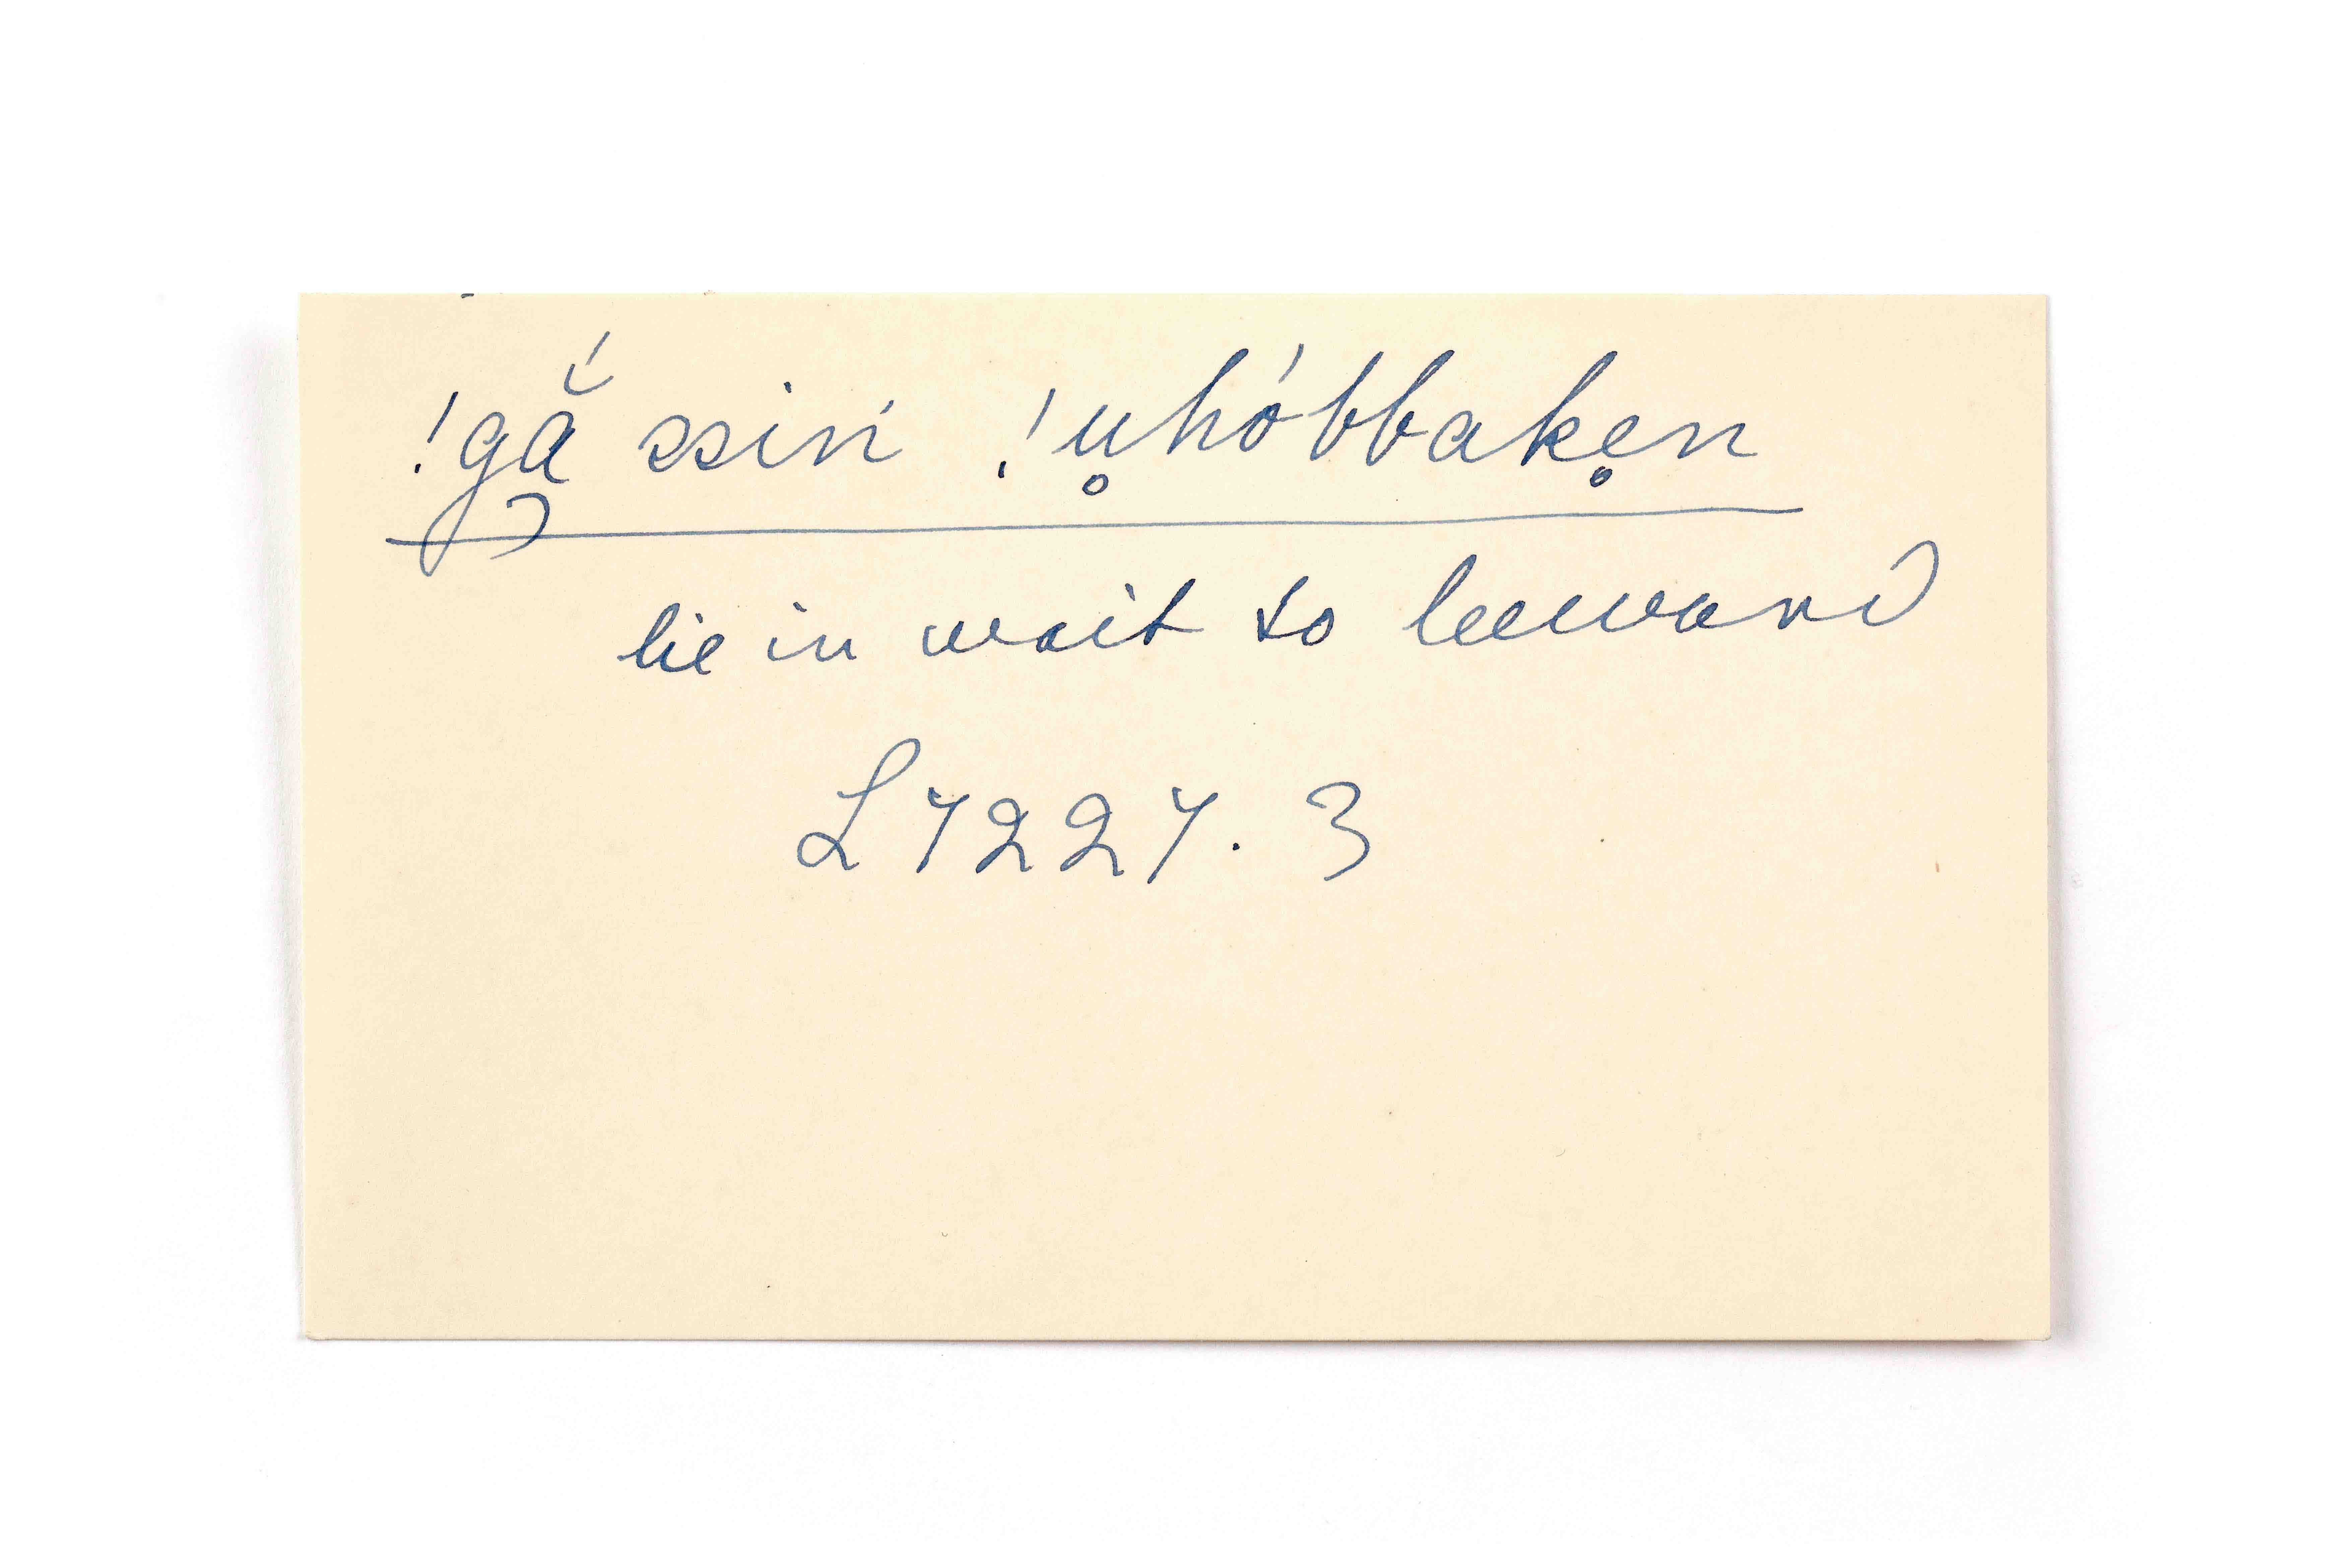 !gắ̰ ssiń !ụ̊hóbbake̥n
lie in wait to leeward
L7227.3